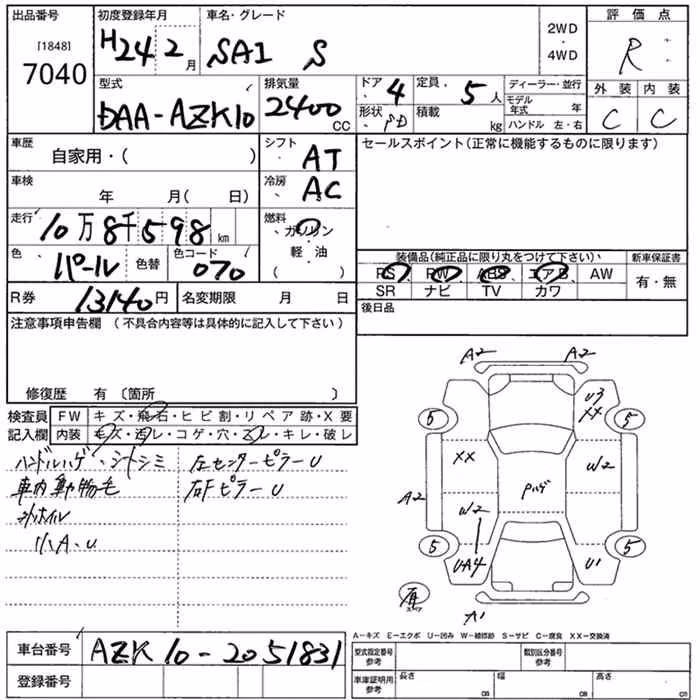 出品番号
[1848]
7040
初度登録年月
H24 2月
車名・グレード
SAI S
2WD
・
4WD
評価点
R
型式
DAA-AZK10
排気量
2400 CC
ドア
4
形状
SD
定員
5人
積載
kg
ディーラー・並行
モデル年式 年
ハンドル 左・右
外装 内装
C C
車歴
自家用・( )
シフト
AT
車検
年 月( 日)
冷房
AC
走行
10万8千598 km
燃料
ガソリン
・
軽油
( )
色
パール
色替
色コード
070
R券
13140円
名変期限 月 日
セールスポイント(正常に機能するものに限ります)
装備品(純正品に限り丸をつけて下さい)
新車保証書
PS PW ABS エアB AW
SR ナビ TV カワ
有・無
後日品
注意事項申告欄 (不具合内容等は具体的に記入して下さい)
修復歴 有 〔箇所 〕
検査員記入欄
FW キズ・飛石・ヒビ割・リペア跡・X要
内装 キズ・汚レ・コゲ・穴・スレ・キレ・破レ
ハンドルハゲ・シートシミ
車内動物毛
リハA・U
左センターピラーU
右Fピラー U
A2 A2
U3
XX
5 5
XX
W2
A2
Pハゲ
W2
5 5
UA4
U1
A1
A-キズ E-エクボ U-凹み W-補修跡 S-サビ C-腐食 XX-交換済
車台番号
AZK10-2051831
登録番号
型式指定番号
参考
類別区分番号
参考
車庫証明用
参考
長さ
cm
幅
cm
高さ
cm